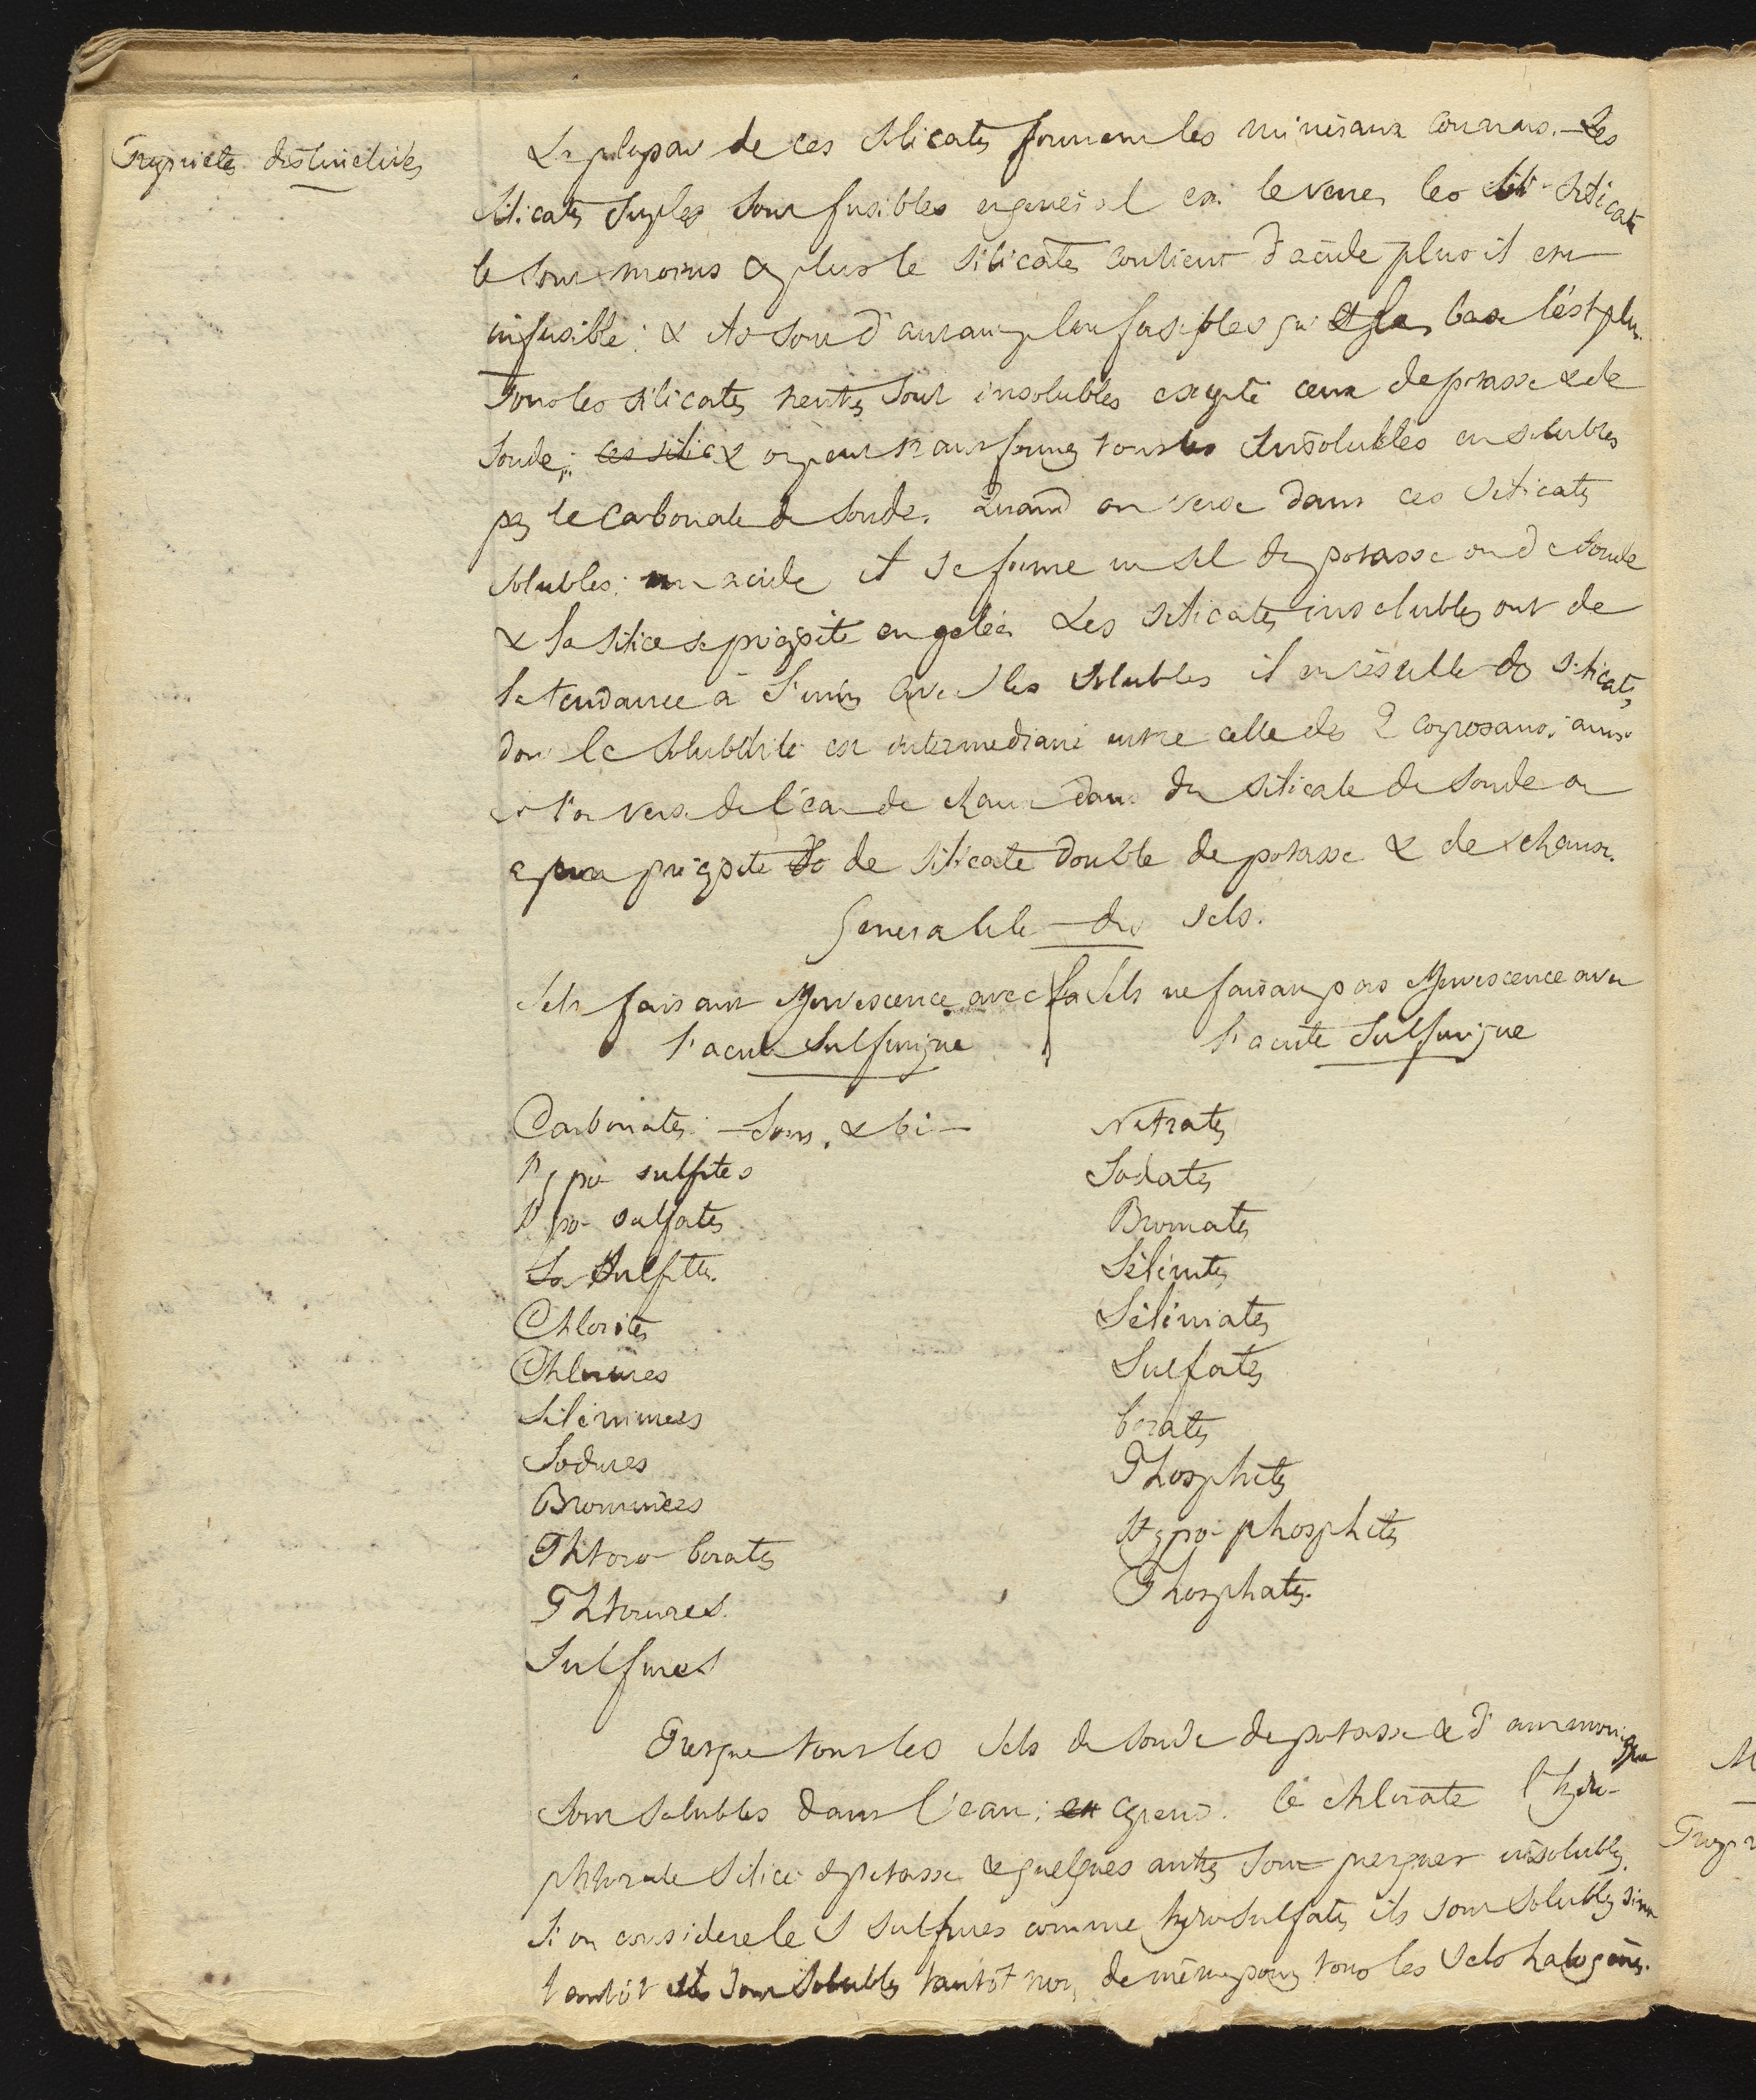 Proprietés distinctives
La plupart de ces silicates forment les minéraux connus. Les
silicates simples sont fusibles en général ex. le verre, les silicates
le sont moins & plus le silicate contient d'acide plus il est
infusible : & ils sont d'autant plus fusibles que la base l'est plus.
Tous les silicates neutres sont insolubles excepté ceux de potasse & de
soude ; ces silic & on peut transformer tous les insolubles en solubles
par le carbonate de soude. Quand on verse dans ces silicates
solubles un acide il se forme un sel de potasse ou de soude
& la silice se précipite en gelée. Les silicates insolubles ont de
la tendance à s'unir avec les solubles il en résulte des silicates
dont la solubilité est intermediaire entre celle des 2 composans ; ainsi
si l'on verse de l'eau de chaux dans du silicate de soude on
a un précipité de silicate double de potasse & de chaux.
Generalité des sels.
Sels faisant effervescence avec
l'acide sulfurique
Sels ne faisant pas effervescence avec
l'acide sulfurique
Carbonates - sous. & bi -
Hypo sulfites
Hypo- sulfates
Sulfites.
Chlorites
Chlorures
Séléniures
Iodures
Bromures
Phtoro-borates
Phtorures.
Sulfures
Nitrates
Iodates
Bromates
Sélénites
Séléniates
Sulfates
borates
Phosphites
Hypo-phosphites
Phosphates.
Presque tous les sels de soude de potasse & d'ammoniaque
sont solubles dans l'eau ; cepend. le chlorate l'hydro-
phtorate silicé de potasse & quelques autres sont presques insolubles.
Si on considere les sulfures comme hydrosulfates ils sont solubles sinon
tantôt ils sont solubles tantôt non, de même pour tous les sels halogènes.